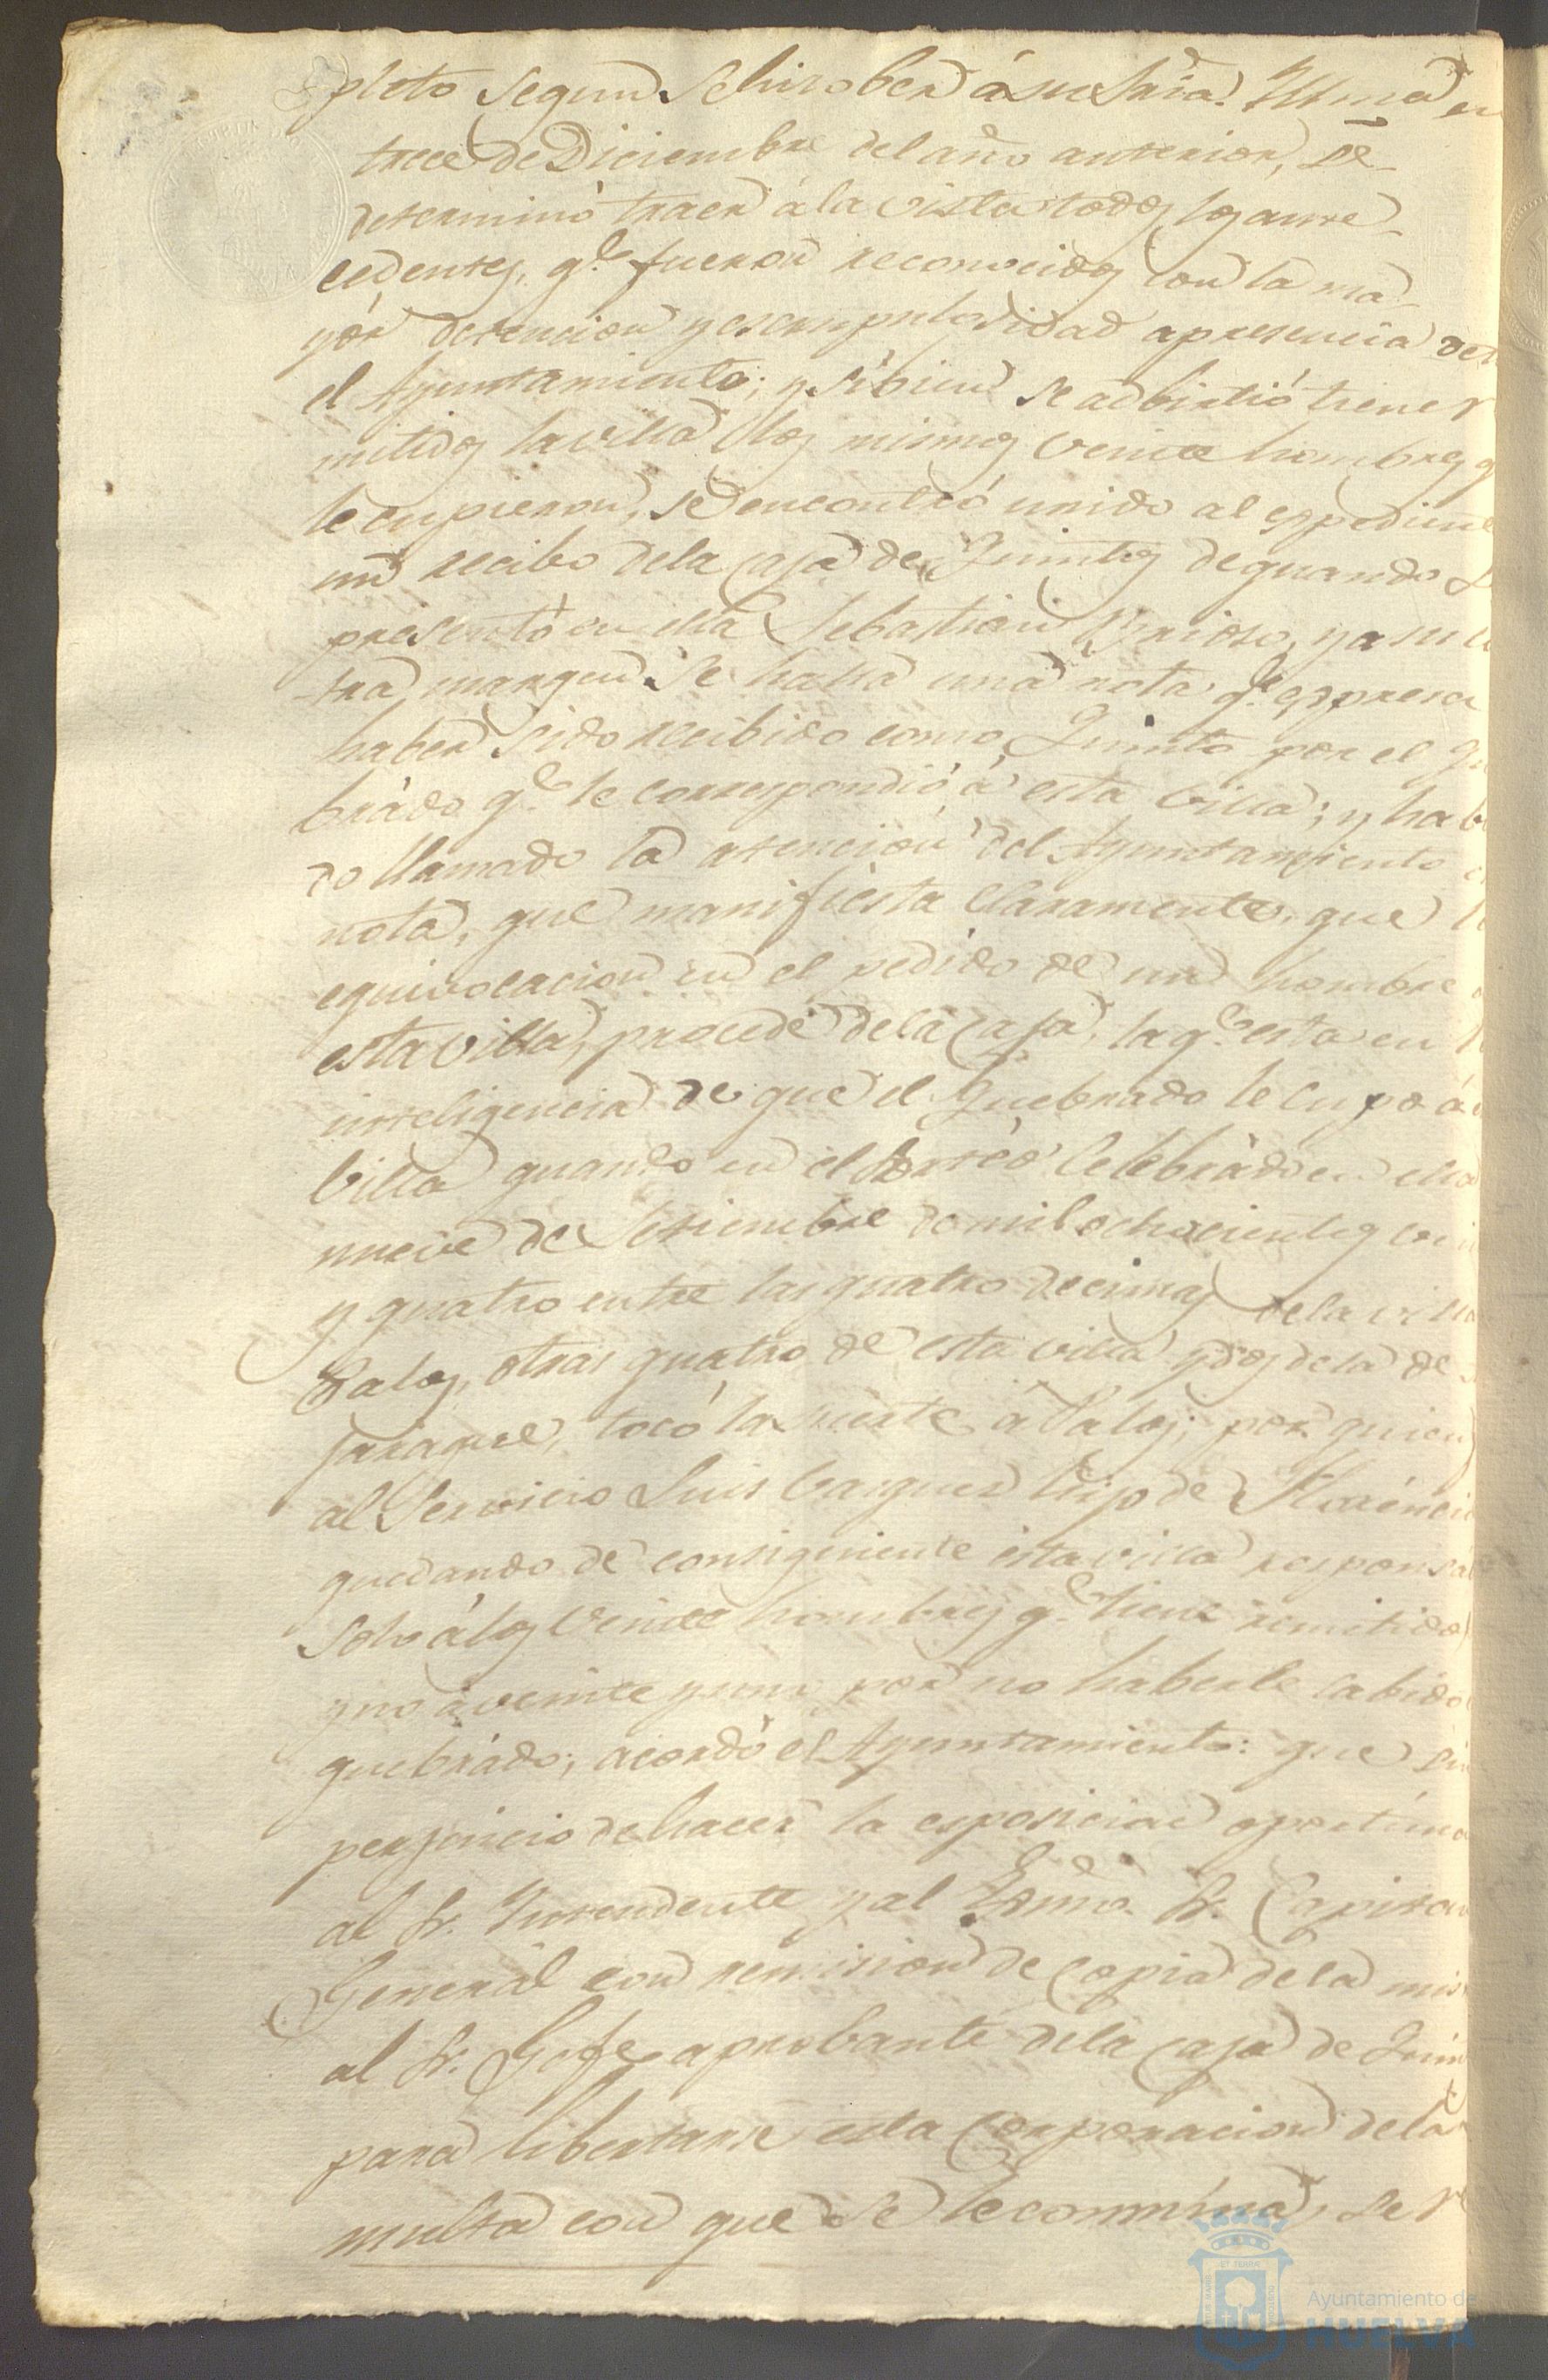 pleto segun se hizo ber á su Sria. Yllma en
trece de Diciembre del año anterior, se
determinó traer á la vista todos los ante-
cedentes, qe. fueron reconocidos con la ma-
yór detencion y escrupulosidad a presencia de
el Ayuntamiento; y si bien se adbirtió tiene r
mitidos la villa los mismos veinte hombres q
le cupieron, se encontró unido al espediente
un recibo de la Caja de Quintos de quando se
presentó en ella Sebastian Brioso, y a su
tra margen se halla una nota qe. espresa
haber sido recibido como Quinto por el que
brádo qe. le correspondió á esta villa; y habi
do llamado la atencion del Ayuntamiento
nota, que manifiesta claramente, que la
equivocacion en el pedido de un hombre
esta villa, procede de la Caja, la qe. esta en
inteligencia de que el Quebrado le cupo á
villa quando en el Sorteo celebrádo en ella
nueve de Setiembre de mil ochocientos vein
y quatro entre las quatro decimas de la villa
Palos, otras quatro de esta villa y dos de la de
jaraque, tocó la suerte á Palos; por quien
al Servicio Luis Vasquez hijo de Florencio
quedando de consiguiente esta villa responsab
solo á los veinte hombres qe. tiene remitidos
y no á veinte y uno por no haberle cabido
quebrádo; acordó el Ayuntamiento: que sin
perjuicio de hacer la esposicion oportuna
al Sr. Yntendente y al Exmo. Sr. Capitan
General con remision de copia de la mis
al Sr. Gefe aprobante de la Caja de Quin
para libertarse esta Corporacion de la
multa con que se le conmina, se r
Ayuntamiento de
HUELVA